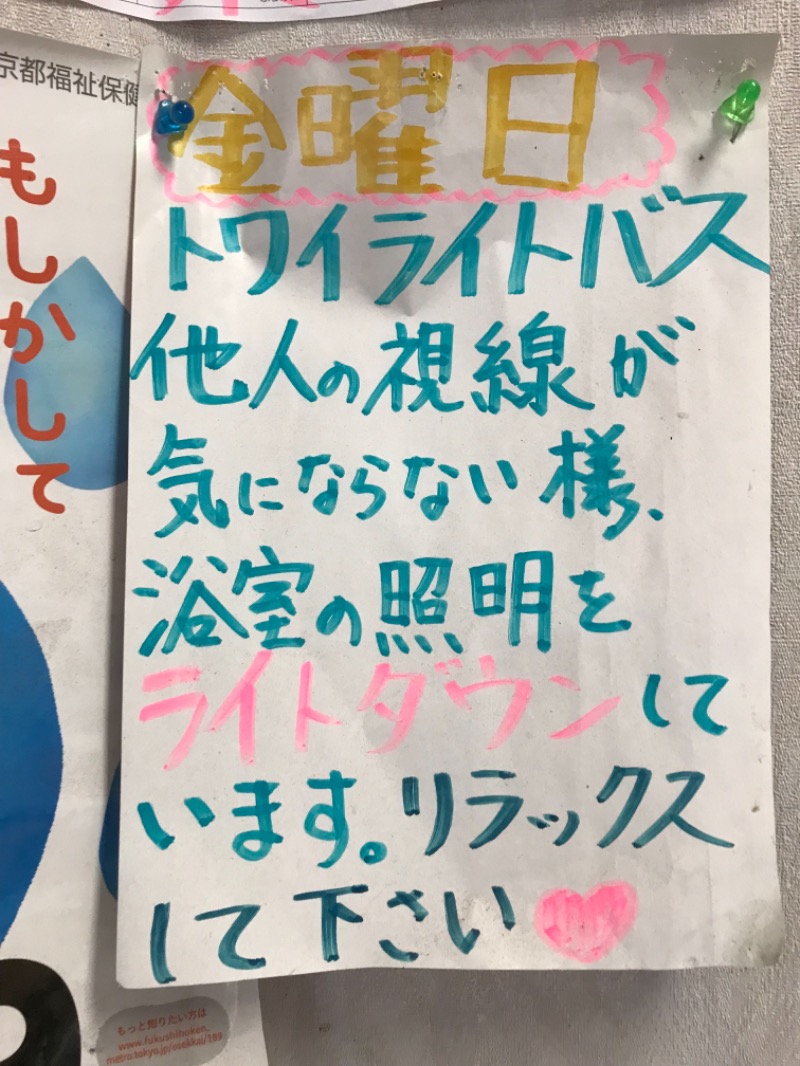 京都福祉保健
もしかして
金曜日
トワイライトバス
他人の視線が
気にならない様、
浴室の照明を
ライトダウンして
います。リラックス
して下さい
もっと知りたい方は
www.fukushihoken.
metro.tokyo.jp/osekkai/189